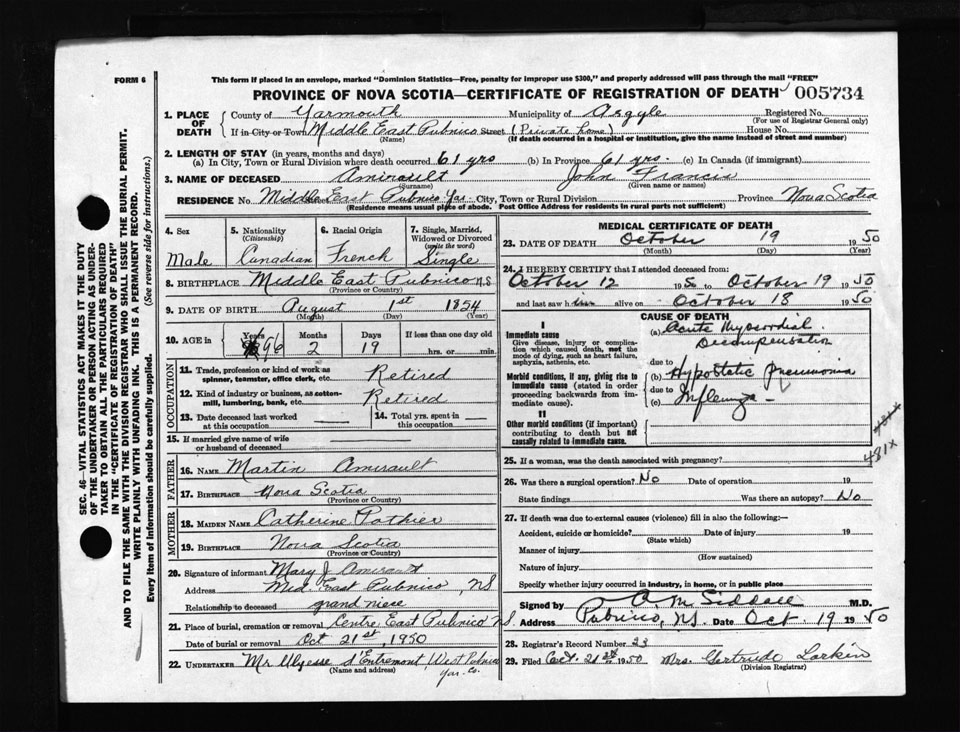 FORM 6
This form if placed in an envelope, marked "Dominion Statistics—Free, penalty for improper use $300," and properly addressed will pass through the mail "FREE"
PROVINCE OF NOVA SCOTIA—CERTIFICATE OF REGISTRATION OF DEATH 005734
1. PLACE OF DEATH County of Yarmouth Municipality of Argyle Registered No. (For use of Registrar General only)
If in City or Town Middle East Pubnico Street (Private home) House No.
(Name) (If death occurred in a hospital or institution, give the name instead of street and number)
2. LENGTH OF STAY (in years, months and days)
(a) In City, Town or Rural Division where death occurred 61 yrs (b) In Province 61 yrs. (c) In Canada (if immigrant)
3. NAME OF DECEASED Amirault John Francis
(Surname) (Given name or names)
RESIDENCE No. Middle East Pubnico Yar. City, Town or Rural Division Province Nova Scotia
(Residence means usual place of abode. Post Office Address for residents in rural parts not sufficient)
4. Sex 5. Nationality (Citizenship) 6. Racial Origin 7. Single, Married, Widowed or Divorced (write the word)
Male Canadian French Single
8. BIRTHPLACE Middle East Pubnico N.S
(Province or Country)
9. DATE OF BIRTH August 1st 1854
(Month) (Day) (Year)
10. AGE in Years Months Days If less than one day old
96 2 19 hrs. or min.
OCCUPATION
11. Trade, profession or kind of work as spinner, teamster, office clerk, etc. Retired
12. Kind of industry or business, as cotton-mill, lumbering, bank, etc. Retired
13. Date deceased last worked at this occupation 14. Total yrs. spent in this occupation
15. If married give name of wife or husband of deceased
FATHER
16. NAME Martin Amirault
17. BIRTHPLACE Nova Scotia
(Province or Country)
MOTHER
18. MAIDEN NAME Catherine Pothier
19. BIRTHPLACE Nova Scotia
(Province or Country)
20. Signature of informant Mary J Amirault
Address Mid. East Pubnico, NS
Relationship to deceased grand niece
21. Place of burial, cremation or removal Centre East Pubnico N.S.
Date of burial or removal Oct 21st, 1950
22. UNDERTAKER Mr Ulysse d'Entremont, West Pubnico
(Name and address) Yar. Co.
MEDICAL CERTIFICATE OF DEATH
23. DATE OF DEATH October 19 1950
(Month) (Day) (Year)
24. I HEREBY CERTIFY that I attended deceased from:
October 12 1950 to October 19 1950
and last saw him alive on October 18 1950
CAUSE OF DEATH
I
Immediate cause
Give disease, injury or complication which caused death, not the mode of dying, such as heart failure, asphyxia, asthenia, etc.
(a) Acute Myocardial Decompensation
due to
Morbid conditions, if any, giving rise to immediate cause (stated in order proceeding backwards from immediate cause).
(b) Hypostatic Pneumonia
due to
(c) Influenza
II
Other morbid conditions (if important) contributing to death but not causally related to immediate cause.
481x
25. If a woman, was the death associated with pregnancy?
26. Was there a surgical operation? No Date of operation 19
State findings Was there an autopsy? No
27. If death was due to external causes (violence) fill in also the following:—
Accident, suicide or homicide? Date of injury 19
(State which)
Manner of injury
(How sustained)
Nature of injury
Specify whether injury occurred in industry, in home, or in public place
Signed by O. M. Siddall M.D.
Address Pubnico, N.S. Date Oct. 19 1950
28. Registrar's Record Number 23
29. Filed Oct. 21st 1950 Mrs. Gertrude Larkin
(Division Registrar)
SEC. 46—VITAL STATISTICS ACT MAKES IT THE DUTY
OF THE UNDERTAKER OR PERSON ACTING AS UNDER-
TAKER TO OBTAIN ALL THE PARTICULARS REQUIRED
IN THE "CERTIFICATE OF REGISTRATION OF DEATH"
AND TO FILE THE SAME WITH THE DIVISION REGISTRAR WHO SHALL ISSUE THE BURIAL PERMIT.
WRITE PLAINLY WITH UNFADING INK. THIS IS A PERMANENT RECORD.
Every item of information should be carefully supplied. (See reverse side for instructions.)